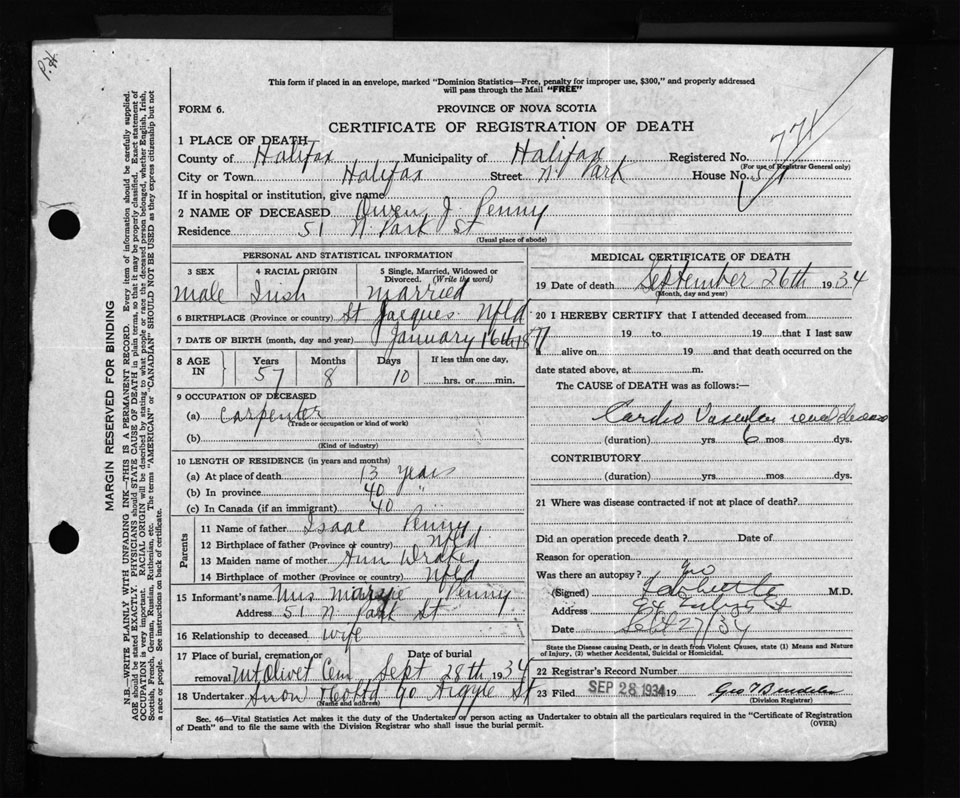 This form if placed in an envelope, marked "Dominion Statistics—Free, penalty for improper use, $300," and properly addressed
will pass through the Mail "FREE"
FORM 6.
PROVINCE OF NOVA SCOTIA
CERTIFICATE OF REGISTRATION OF DEATH
1 PLACE OF DEATH
County of Halifax Municipality of Halifax Registered No.
(For use of Registrar General only)
City or Town Halifax Street N. Park House No. 51
If in hospital or institution, give name
2 NAME OF DECEASED Owen J Penny
Residence 51 N. Park St
(Usual place of abode)
PERSONAL AND STATISTICAL INFORMATION
3 SEX 4 RACIAL ORIGIN 5 Single, Married, Widowed or Divorced. (Write the word)
Male Irish Married
6 BIRTHPLACE (Province or country) St Jacques Nfld
7 DATE OF BIRTH (month, day and year) January 16th 1877
8 AGE IN Years Months Days If less than one day,
57 8 10 hrs. or min.
9 OCCUPATION OF DECEASED
(a) Carpenter
(Trade or occupation or kind of work)
(b)
(Kind of industry)
10 LENGTH OF RESIDENCE (in years and months)
(a) At place of death 13 years
(b) In province 40 "
(c) In Canada (if an immigrant) 40
Parents
11 Name of father Isaac Penny
12 Birthplace of father (Province or country) Nfld
13 Maiden name of mother Ann Drake
14 Birthplace of mother (Province or country) Nfld
15 Informant's name Mrs Penny
Address 51 N Park St
16 Relationship to deceased wife
17 Place of burial, cremation or removal Date of burial
Mt Olivet Cem Sept 28th 1934
18 Undertaker Snow & Co Ltd 90 Argyle St
(Name and address)
MEDICAL CERTIFICATE OF DEATH
19 Date of death September 26th 1934
(Month, day and year)
20 I HEREBY CERTIFY that I attended deceased from
19 to 19 that I last saw
alive on 19 and that death occurred on the
date stated above, at m.
The CAUSE of DEATH was as follows:—
Cardio Vascular renal disease
(duration) yrs 6 mos dys.
CONTRIBUTORY
(duration) yrs. mos. dys.
21 Where was disease contracted if not at place of death?
Did an operation precede death? Date of
Reason for operation
Was there an autopsy? no
(Signed) M.D.
Address
Date Sept 27/34
State the Disease causing Death, or in death from Violent Causes, state (1) Means and Nature
of Injury, (2) whether Accidental, Suicidal or Homicidal.
22 Registrar's Record Number
23 Filed SEP 28 1934 19 Geo
(Division Registrar)
Sec. 46—Vital Statistics Act makes it the duty of the Undertaker or person acting as Undertaker to obtain all the particulars required in the "Certificate of Registration
of Death" and to file the same with the Division Registrar who shall issue the burial permit.
(OVER)
MARGIN RESERVED FOR BINDING
N.B.—WRITE PLAINLY WITH UNFADING INK—THIS IS A PERMANENT RECORD. Every item of information should be carefully supplied.
AGE should be stated EXACTLY. PHYSICIANS should STATE CAUSE OF DEATH in plain terms, so that it may be properly classified. Exact statement of
OCCUPATION is very important. RACIAL ORIGIN will be described by stating to what people or race the deceased person belonged, whether English, Irish,
Scottish, French, German, Russian, Ruthenian, etc. The terms "AMERICAN" or "CANADIAN" SHOULD NOT BE USED as they express citizenship but not
a race or people. See instructions on back of certificate.